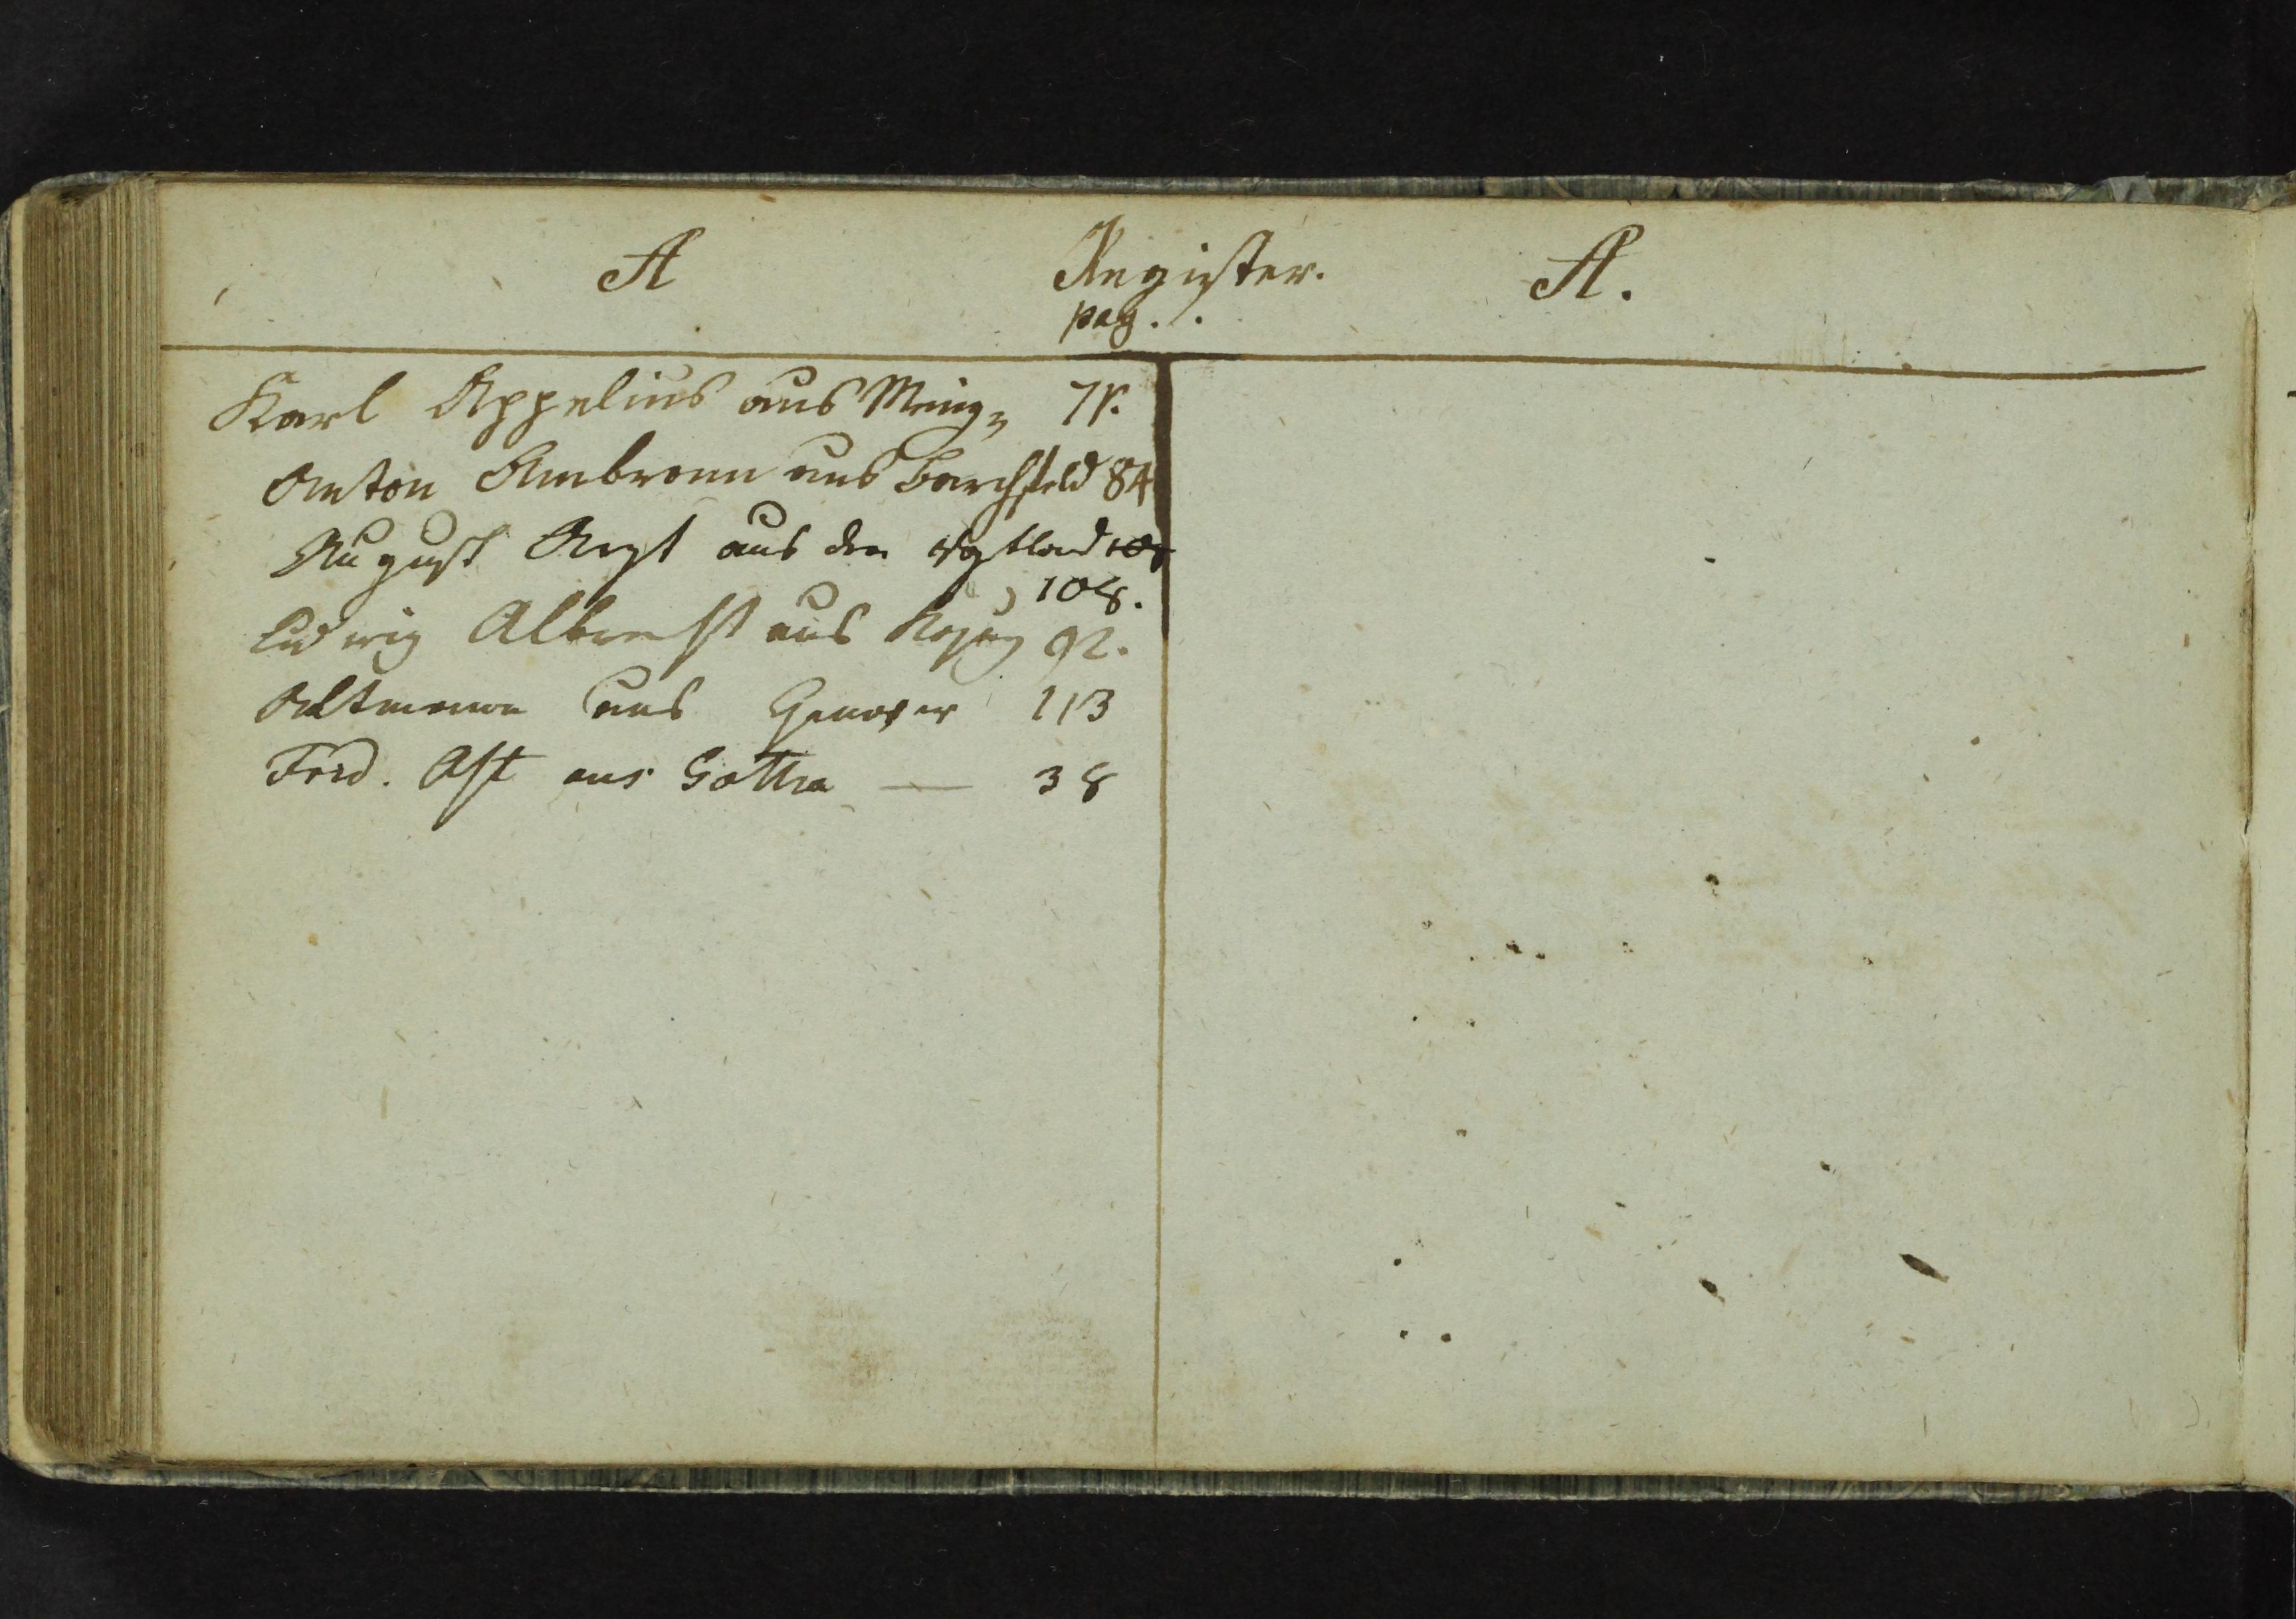 A Register. A.
pag.
Karl Appelius aus Mein. 71.
Anton Ambronn aus Barchfeld 84
August Arzt aus dem Vgtland
108.
Ludwig Albrecht aus 92.
Altmann aus Hanover 113
Ferd. Ast aus Gotha — 38